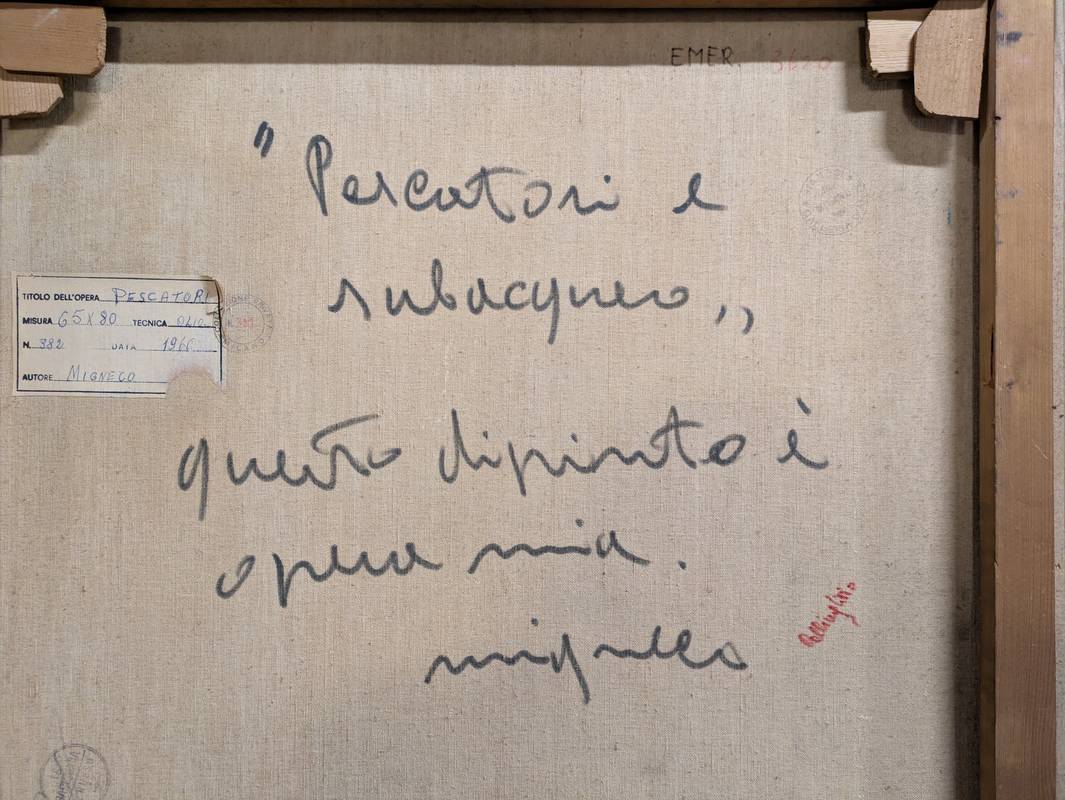 EMER.
" Pescatori e
subacqueo „
TITOLO DELL'OPERA PESCATORI
MISURA 65 x 80 TECNICA OLIO
N. 382 DATA 1966
AUTORE MIGNECO
questo dipinto è
opera mia.
migneco